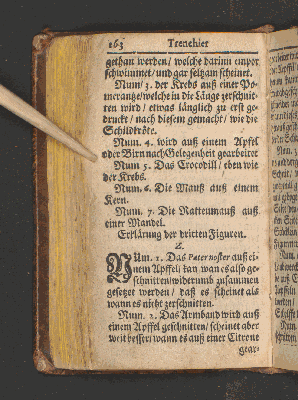 163 Trenchier
gethan werden/ welche darinn empor
schwimmet/ und gar seltzam scheinet.
Num/ 3. der Krebs auß einer Po-
merantze/welche in die Länge zerschnit-
ten wird/ etwas länglich zu erst ge-
druckt/ nach diesem gemacht/ wie die
Schildkröte.
Num. 4. wird auß einem Apfel
oder Birn nach Gelegenheit gearbeitet
Num 5. Das Crocodill/ eben wie
der Krebs.
Num. 6. Die Mauß auß einem
Kern.
Num. 7. Die Rattenmauß auß
einer Mandel.
Erklärung der dritten Figuren.
Z.
Num. 1. Das Pater noster auß ei-
nem Apffel; kan wan es also ge-
schnitten/widerumb zusammen
gesetzet werden/ daß es scheinet als
wann es nicht zerschnitten.
Num. 2. Das Armband wird auß
einem Apffel geschnitten/ scheinet aber
weit besser/ wann es auß einer Citrone
gear-